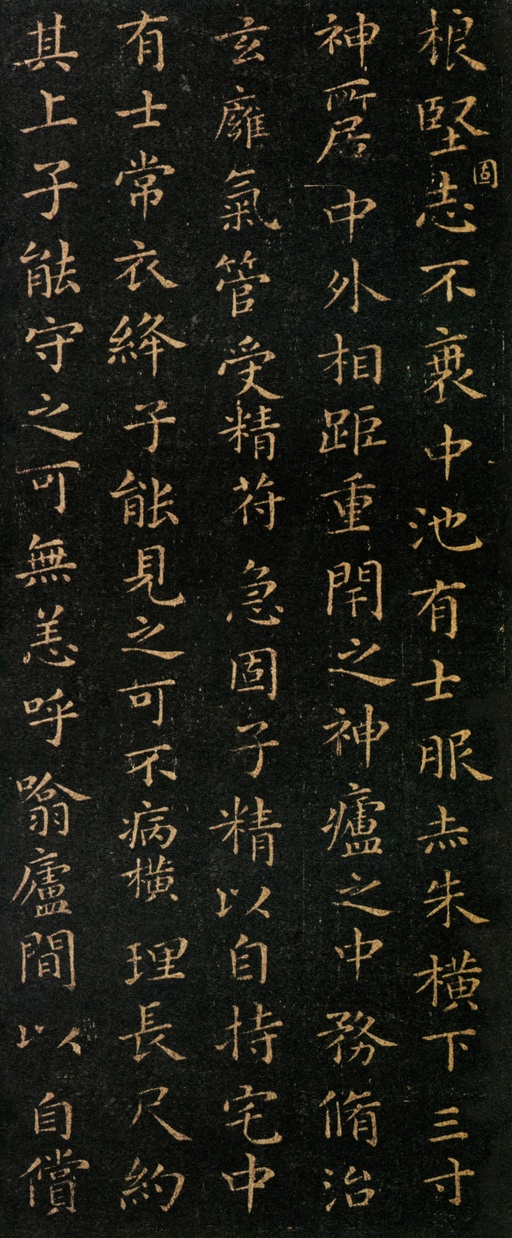 根堅志不衰中池有士服赤朱横下三寸
固
神所居中外相距重閇之神廬之中務脩治
玄廱氣管受精苻急固子精以自持宅中
有士常衣絳子能見之可不病横理長尺約
其上子能守之可無恙呼噏廬間以自償